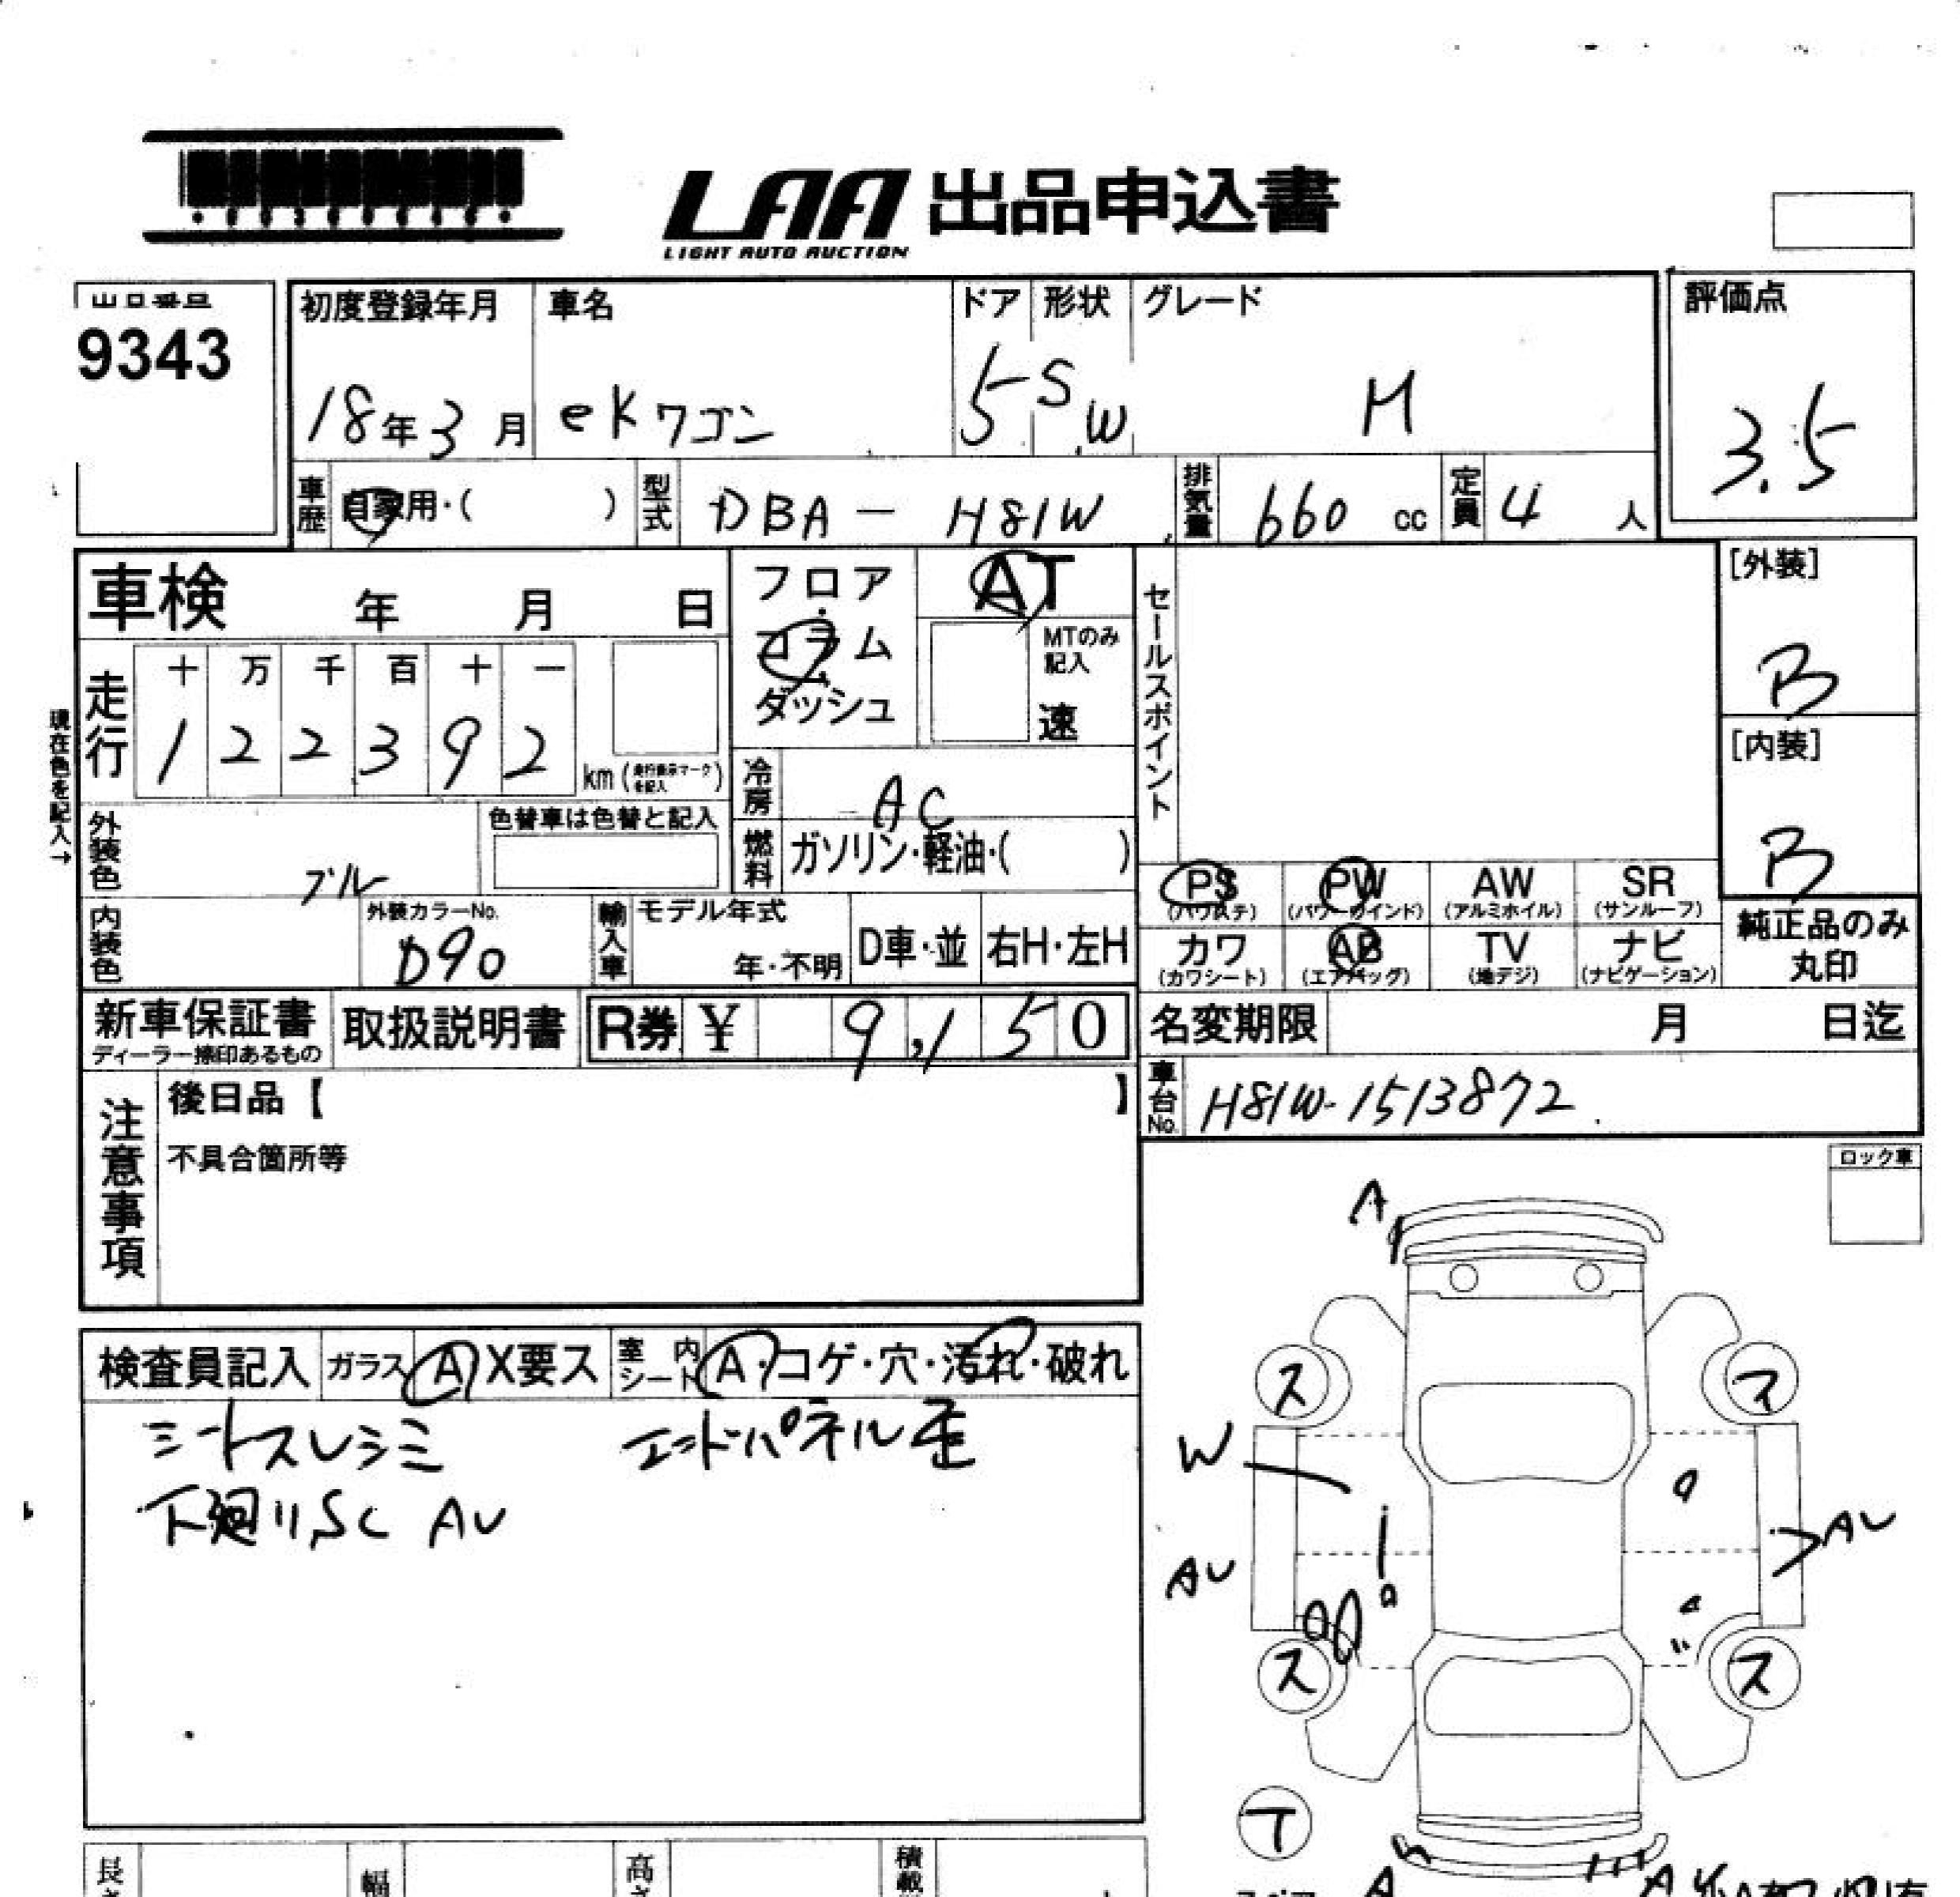 LAA 出品申込書
LIGHT AUTO AUCTION
出品番号
9343
初度登録年月 車名 ドア 形状 グレード 評価点
18年3月 eKワゴン 5 S.W M 3.5
車歴 自家用・( ) 型式 DBA - H81W 排気量 660 cc 定員 4 人
車検 年 月 日
フロア
コラム
ダッシュ
AT
MTのみ
記入
速
セールスポイント
[外装]
B
[内装]
B
現在色を記入→
走行 十 万 千 百 十 一
1 2 2 3 9 2 km (走行表示マークを記入)
冷房 AC
燃料 ガソリン・軽油・( )
外装色 ブル
色替車は色替と記入
内装色
外装カラーNo.
D90
輸入車 モデル年式
年・不明
D車・並 右H・左H
PS PW AW SR
(パワステ) (パワーウインド) (アルミホイル) (サンルーフ)
カワ AB TV ナビ
(カワシート) (エアバッグ) (地デジ) (ナビゲーション)
純正品のみ
丸印
新車保証書
ディーラー捺印あるもの
取扱説明書 R券 ¥ 9,150
名変期限 月 日迄
車台No. H81W-1513872
注意事項
後日品【 】
不具合箇所等
ロック車
検査員記入 ガラス A X要ス 室内シート A・コゲ・穴・汚れ・破れ
シートスレシミ エンドパネル歪
下廻りSC AU
A
ス ス
W
AU AU
ス ス
T
A A
長さ 幅 高さ 積載